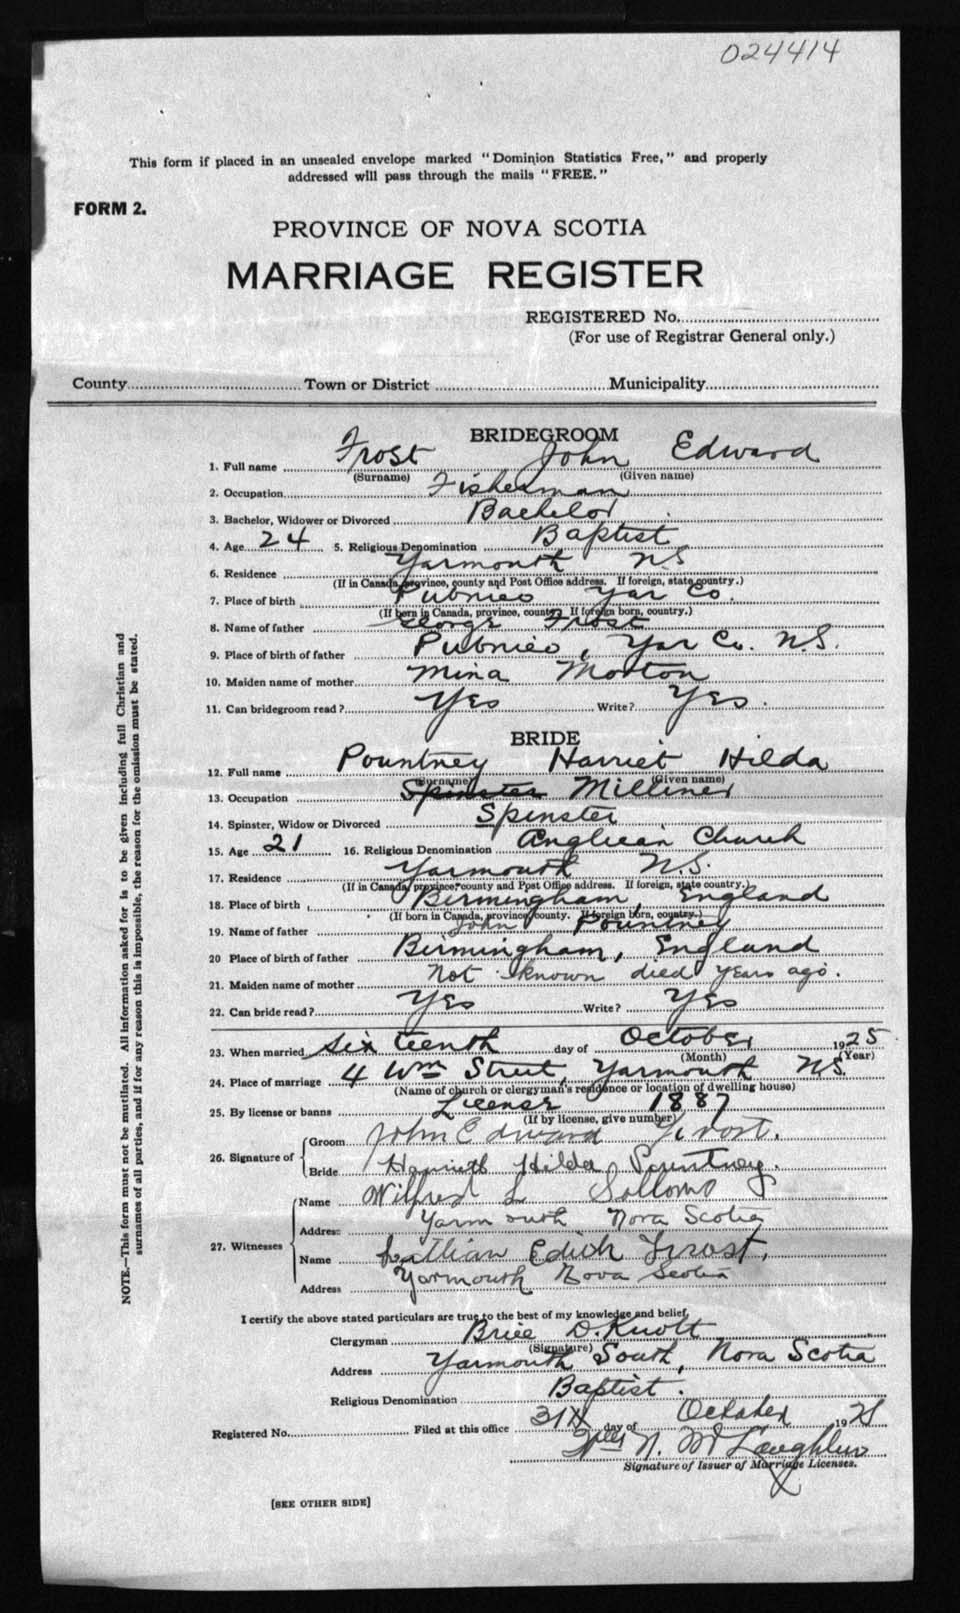 024414
This form if placed in an unsealed envelope marked "Dominion Statistics Free," and properly
addressed will pass through the mails "FREE."
FORM 2.
PROVINCE OF NOVA SCOTIA
MARRIAGE REGISTER
REGISTERED No.
(For use of Registrar General only.)
County Town or District Municipality
BRIDEGROOM
1. Full name Frost John Edward
(Surname) (Given name)
2. Occupation Fisherman
3. Bachelor, Widower or Divorced Bachelor
4. Age 24 5. Religious Denomination Baptist
6. Residence Yarmouth NS
(If in Canada, province, county and Post Office address. If foreign, state country.)
7. Place of birth Pubnico Yar Co.
(If born in Canada, province, county. If foreign born, country.)
8. Name of father George Frost
9. Place of birth of father Pubnico, Yar Co. N.S.
10. Maiden name of mother Mina Morton
11. Can bridegroom read? Yes Write? Yes.
BRIDE
12. Full name Pountney Harriet Hilda
(Surname) (Given name)
13. Occupation Spinster Milliner
14. Spinster, Widow or Divorced Spinster
15. Age 21 16. Religious Denomination Anglican Church
17. Residence Yarmouth N.S.
(If in Canada, province, county and Post Office address. If foreign, state country.)
18. Place of birth Birmingham, England
(If born in Canada, province, county. If foreign born, country.)
19. Name of father John Pountney
20 Place of birth of father Birmingham, England
21. Maiden name of mother Not known died years ago.
22. Can bride read? Yes Write? Yes
23. When married sixteenth day of October 1925
(Month) (Year)
24. Place of marriage 4 Wm Street, Yarmouth N.S.
(Name of church or clergyman's residence or location of dwelling house)
25. By license or banns License 1887
(If by license, give number)
26. Signature of Groom John Edward Frost.
Bride Harriett Hilda Pountney.
27. Witnesses Name Wilfred L
Address Yarmouth Nova Scotia
Name Lillian Edith Frost.
Address Yarmouth Nova Scotia
I certify the above stated particulars are true to the best of my knowledge and belief.
Clergyman Brice D. Knott
(Signature)
Address Yarmouth South, Nova Scotia
Religious Denomination Baptist.
Registered No. Filed at this office 31st day of October 1925
N. McLaughlin
Signature of Issuer of Marriage Licenses.
[SEE OTHER SIDE]
NOTE.—This form must not be mutilated. All information asked for is to be given including full Christian and
surnames of all parties, and if for any reason this is impossible, the reason for the omission must be stated.